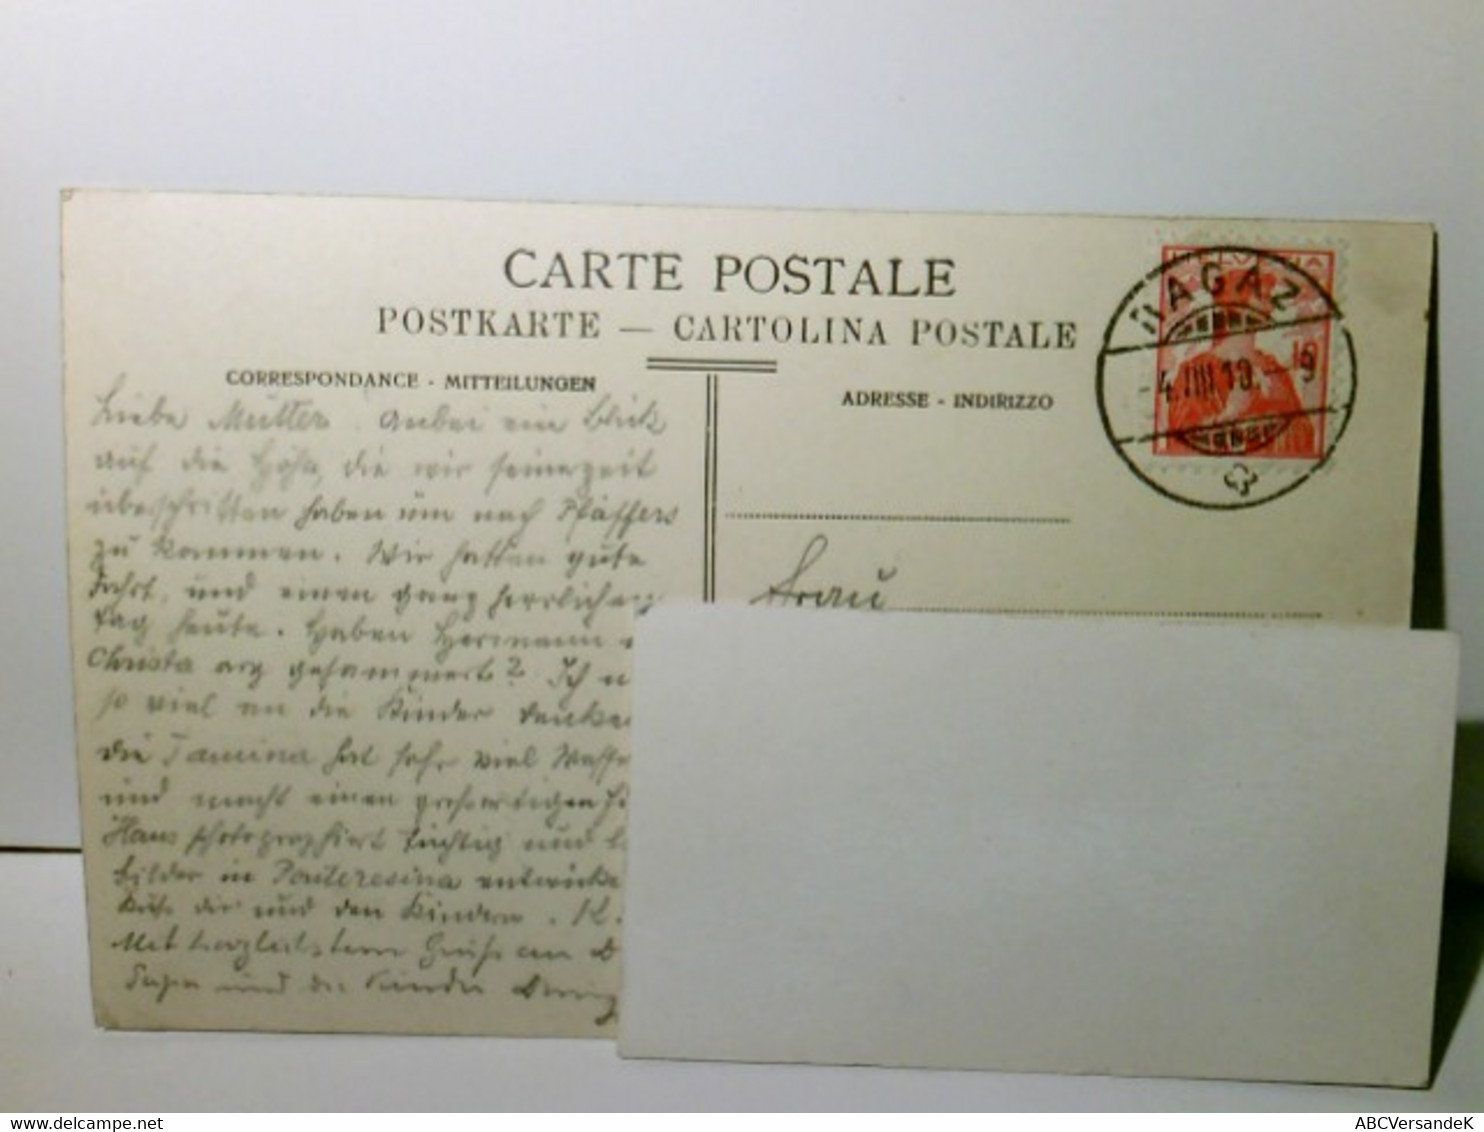 CARTE POSTALE
POSTKARTE — CARTOLINA POSTALE
CORRESPONDANCE - MITTEILUNGEN
ADRESSE - INDIRIZZO
HELVETIA
RAGAZ
10
Liebe Mutter. Anbei ein Blick
auf die Höhe, die wir seinerzeit
überschritten haben um nach Pfäffers
zu kommen. Wir hatten gute
Fahrt, und einen ganz herrlichen
Tag heute. Haben Hermann
Christa arg gejammert? Ich
so viel an die Kinder denken
die Tamina hat sehr viel
und macht einen großartigen
Hans photographiert tüchtig und
Bilder in Pontresina
Küße dir und den Kindern.
Mit herzlichstem Gruß an
und die Kinder
Frau
ABCVersandeK